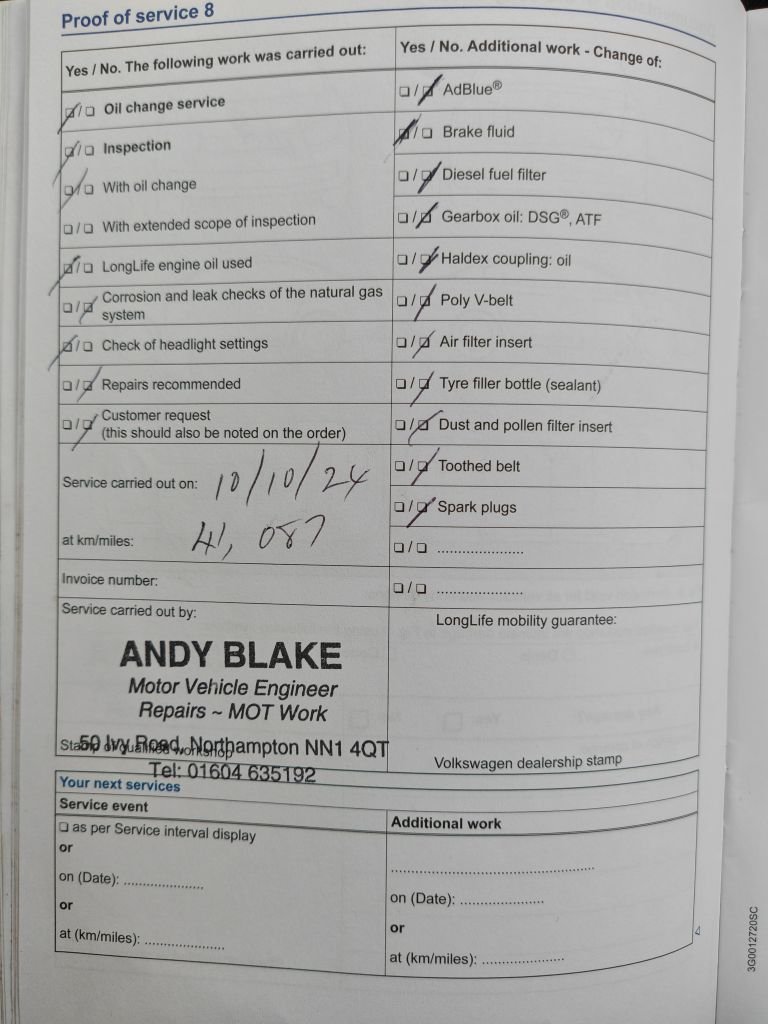 Proof of service 8
Yes / No. The following work was carried out:
☑/☐ Oil change service
☑/☐ Inspection
☑/☐ With oil change
☐/☐ With extended scope of inspection
☑/☐ LongLife engine oil used
☐/☑ Corrosion and leak checks of the natural gas
system
☑/☐ Check of headlight settings
☐/☑ Repairs recommended
☐/☑ Customer request
(this should also be noted on the order)
Service carried out on: 10/10/24
at km/miles: 41,087
Invoice number:
Service carried out by:
ANDY BLAKE
Motor Vehicle Engineer
Repairs ~ MOT Work
50 Ivy Road, Northampton NN1 4QT
Stamp of qualified workshop
Tel: 01604 635192
Yes / No. Additional work - Change of:
☐/☑ AdBlue®
☑/☐ Brake fluid
☐/☑ Diesel fuel filter
☐/☑ Gearbox oil: DSG®, ATF
☐/☑ Haldex coupling: oil
☐/☑ Poly V-belt
☐/☑ Air filter insert
☐/☑ Tyre filler bottle (sealant)
☐/☑ Dust and pollen filter insert
☐/☑ Toothed belt
☐/☑ Spark plugs
☐/☐ .....................
☐/☐ .....................
LongLife mobility guarantee:
Volkswagen dealership stamp
Your next services
Service event
☐ as per Service interval display
or
on (Date): ...................
or
at (km/miles): ...................
Additional work
................................................
on (Date): ....................
or
at (km/miles): ...................
3G0012720SC